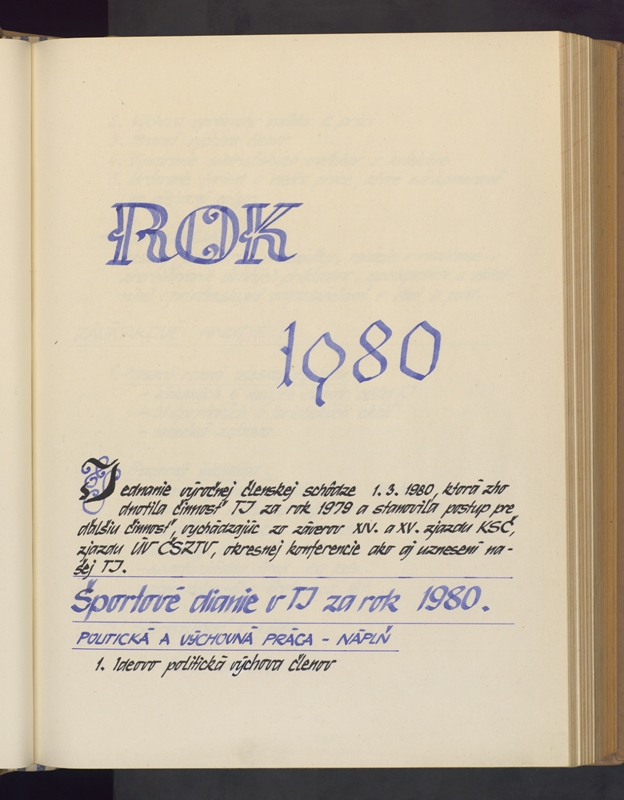 ROK
1980
Jednanie výročnej členskej schôdze 1. 3. 1980, ktorá zho
dnotila činnosť TJ za rok 1979 a stanovila postup pre
ďalšiu činnosť, vychádzajúc zo záverov XIV. a XV. zjazdu KSČ,
zjazdu ÚV ČSZTV, okresnej konferencie ako aj uznesení na-
šej TJ.
Športové dianie v TJ za rok 1980.
POLITICKÁ A VÝCHOVNÁ PRÁCA - NÁPLŇ
1. Ideovo politická výchova členov